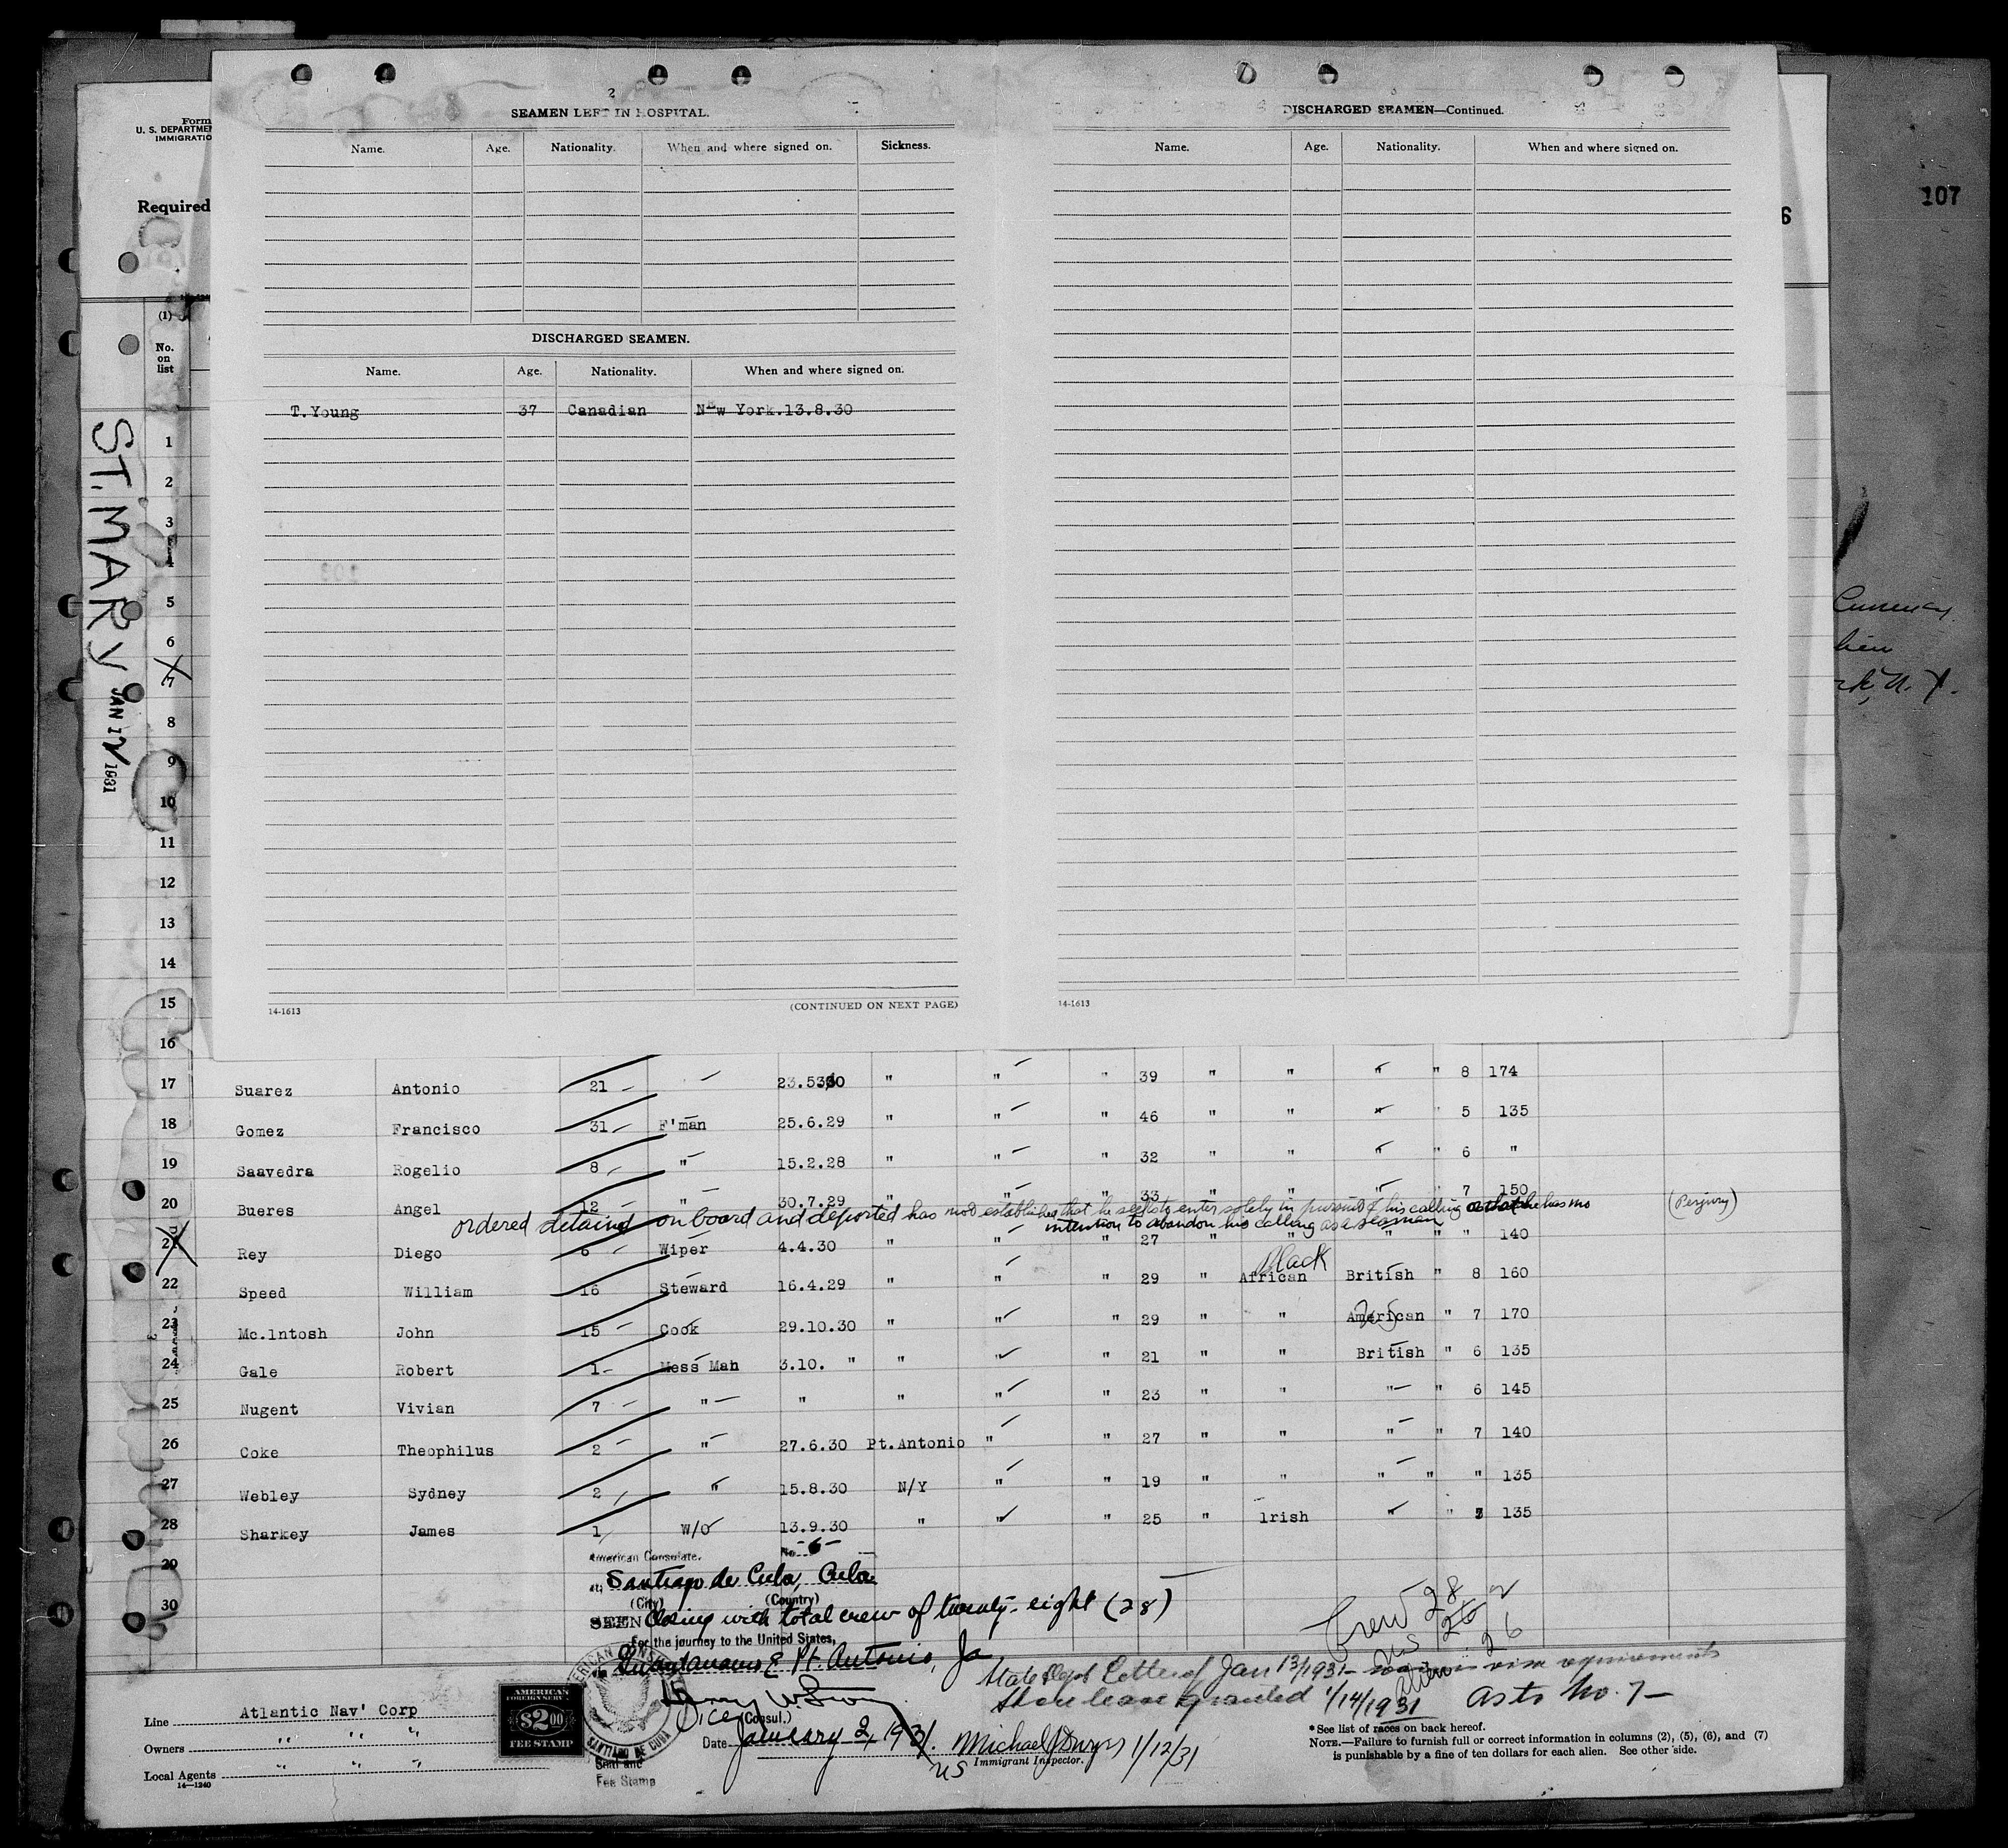 107
6
Form
U. S. DEPARTME
IMMIGRATIO
Required
(1)
No.
on
list
ST. MARY JAN 12 1931
2
SEAMEN LEFT IN HOSPITAL.
Name. Age. Nationality. When and where signed on. Sickness.
DISCHARGED SEAMEN.
Name. Age. Nationality. When and where signed on.
T.Young 37 Canadian New York.13.8.30
14-1613 (CONTINUED ON NEXT PAGE)
DISCHARGED SEAMEN—Continued.
Name. Age. Nationality. When and where signed on.
14-1613
Currency
1
2
3
4
5
6
7
8
9
10
11
12
13
14
15
16
17 Suarez Antonio 21 " " " 39 " " " " 8 174
18 Gomez Francisco 31 F'man 25.6.29 " " " 46 " " " " 5 135
19 Saavedra Rogelio 8 " 15.2.28 " " " 32 " " " " 6 "
20 Bueres Angel 12 " 30.7.29 " " " 33 " " " " 7 150
ordered detained on board and deported has not established that he seeks to enter solely in pursuit of his calling or that he has no (Perjury)
intention to abandon his calling as a seaman
21 Rey Diego 6 Wiper 4.4.30 " " " 27 " " " " " 140
Black
22 Speed William 16 Steward 16.4.29 " " " 29 " African British " 8 160
23 Mc.lntosh John 15 Cook 29.10.30 " " " 29 " " American " 7 170
US
24 Gale Robert 1 Mess Man 3.10. " " " " 21 " " British " 6 135
25 Nugent Vivian 7 " " " " 23 " " " " 6 145
26 Coke Theophilus 2 " 27.6.30 Pt.Antonio " " 27 " " " " 7 140
27 Webley Sydney 2 " 15.8.30 N/Y " " 19 " " " " " 135
28 Sharkey James 1 W/O 13.9.30 " " " 25 " lrish " " 135
29
30
American Consulate. No. 6
at Santiago de Cuba, Cuba
(City) (Country)
SEEN Closing with total crew of twenty-eight (28)
For the journey to the United States,
Guantanamo & Pt. Antonio, Ja
Vice (Consul.)
Date January 2, 1931.
Crew 28
US 2
Alien 26
State Dept Letter of Jan 13/1931 visa requirements
Shore leave granted 1/14/1931 as to No. 7
Michael J Dwyer 1/12/31
US Immigrant Inspector.
AMERICAN
FOREIGN SERV.
$2.00
FEE STAMP
SANTIAGO DE CUBA
Seal and
Fee Stamp
Line Atlantic Nav' Corp
Owners " " "
Local Agents " " "
14—1240
* See list of races on back hereof.
NOTE.—Failure to furnish full or correct information in columns (2), (5), (6), and (7)
is punishable by a fine of ten dollars for each alien. See other side.